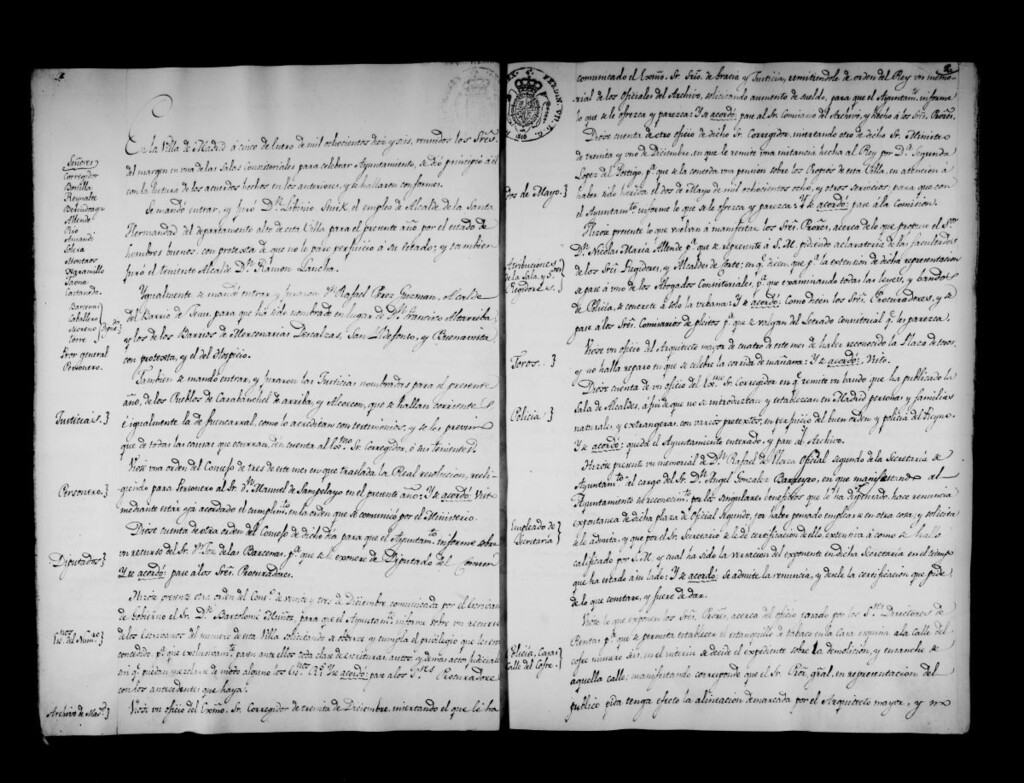 En la Villa de Madrid á cinco de Enero de mil ochocientos diez y seis, reunidos los Sres.
Señores
Corregidor
Bonilla
Reynalte
Allende
Rio
Amandi
Montaos
Jaramillo
Castanedo
Barcena
Caballero
Moreno
Torre
Diputados
Pror. general
Personero.
del margen en una de las Salas Consistoriales para celebrar Ayuntamiento, se dió principio á él
con la lectura de los acuerdos hechos en los anteriores, y se hallaron conformes.
Se mandó entrar, y juró Dn. el empleo de Alcalde de la Santa
Hermandad del departamento alto de esta Villa para el presente año, por el estado de
hombres buenos, con protesta de que no le pare perjuicio á su estado; y tambien
juró el teniente Alcalde Dn. Ramon Lancha.
Ygualmente se mandó entrar y juraron Dn. Rafael Perez Guzman, Alcalde
del Barrio de para que ha sido nombrado en lugar de Dn. Francisco Altarriba,
y los de los Barrios de Mercenarias Descalzas, San Yldefonso, y Buenavista
con protesta, y el del Hospicio.
Tambien se mandó entrar, y juraron las Justicias nombradas para el presente
Justicias.}
año, de los Pueblos de Carabanchel de arriba y Alcorcon, que se hallan corrientes,
é igualmente la de fuencarral, como lo acreditan con testimonios; y se les previno
que de todas las causas que ocurran, dén cuenta al Yltmo. Sr. Corregidor, ó su teniente.
Viose una orden del Consejo de tres de este mes en que traslada la Real resolucion, reeli-
Personero.}
giendo para Personero al Sr. Dn. Manuel de Sampelayo en el presente año: Y se acordó: Visto
mediante estar ya acordado el cumplimto. en la orden que se comunicó por el Ministerio.
Diose cuenta de otra orden del Consejo de dicho dia para que el Ayuntamto. informe sobre
Diputados}
un recurso del Sr. Dn. de las Barcenas, pa. que se le exonere de Diputado del Comun
Y se acordó: pase á los Sres. Procuradores.
Hizose presente otra orden del Conso. de veinte y tres de Diciembre comunicada por el Escrivano
de Gobierno el Sr. Dn. Bartolomé Muñoz, para que el Ayuntamto. informe sobre un recurso
Esnos. del Numo.}
de los Escrivanos del numero de esta Villa solicitando se observe y cumpla el privilegio que les está
concedido, pa. que exclusivamte. pasen ante ellos toda clase de escrituras, autos, y demas actos judiciales
sin qe. puedan mezclarse de modo alguno los Esnos. Rs. Y se acordó: pase á los Sres. Procuradores
con los antecedentes que haya.
Archivo de Mad.}
Viose un oficio del Exmo. Sr. Corregidor de treinta de Diciembre, insertando el que le ha
comunicado el Exmo. Sr. Srio. de Gracia y Justicia, remitiendole de orden del Rey un memo-
rial de los Oficiales del Archivo, solicitando aumento de sueldo, para que el Ayuntamto. informe
lo que se le ofrezca y parezca: Y se acordó: pase al Sr. Comisario del Archivo, y hecho á los Sres. Prores.
Diose cuenta de otro oficio de dicho Sr. Corregidor, insertando otro de dicho Sr. Ministro
de treinta y uno de Diciembre, en que le remite una instancia hecha al Rey por Da. Segunda
Dos de Mayo.}
Lopez del Postigo, pa. que se la conceda una pension sobre los Propios de esta Villa, en atencion á
haber sido herida el dos de Mayo de mil ochocientos ocho, y otros servicios; para que con
el Ayuntamto. informe lo que se le ofrezca y parezca: Y se acordó: pase á la Comision.
Hizose presente lo que vuelven á manifestar los Sres. Prores. acerca de lo que propuso el Sr.
Atribuciones
de la Sala, y Sres.
Regidores.}
Dn. Nicolas Maria Allende pa. que se represente á S. M. pidiendo aclaratoria de las facultades
de los Sres. Regidores, y Alcaldes de Corte; en qe. dicen, que pa. la extension de dicha representacion
se pase á uno de los Abogados Consistoriales, pa. que examinando todas las leyes, y bandos
de Policia, se concrete á solo la urbana: Y se acordó: Como dicen los Sres. Procuradores, y se
pase á los Sres. Comisarios de pleitos pa. que se valgan del Letrado consistorial qe. les parezca.
Viose un oficio del Arquitecto mayor de cuatro de este mes de haber reconocido la Plaza de toros,
Toros.}
y no halla reparo en que se celebre la corrida de mañana: Y se acordó: Visto.
Diose cuenta de un oficio del Yltmo. Sr. Corregidor en qe. remite un bando que ha publicado la
Policia}
Sala de Alcaldes, á fin de que no se introduzcan y establezcan en Madrid personas y familias
naturales, y extrangeras, con varios pretextos, en perjuicio del buen orden y policia del Pueblo.
Y se acordó: queda el Ayuntamiento enterado, y pase al Archivo.
Hizose presente un memorial de Dn. Rafael de Oficial segundo de la Secretaria de
Ayuntamto. al cargo del Sr. Dn. Angel Gonzalez Barreyro, en que manifestando al
Ayuntamiento su reconocimto. por los singulares beneficios que le ha dispensado, hace renuncia
Empleado de
Secretaria}
expontanea de dicha plaza de Oficial segundo, por haber pensado emplearse en otra cosa; y solicita
se le admita, y que por el Sr. Secretario se le dé certificacion de ello, extensiva á como se halla
calificado por S. M. y cual ha sido la versacion del exponente en dicha Secretaria en el tiempo
que ha estado á su lado: Y se acordó: se admite la renuncia, y désele la certificacion que pide
de lo que constare, y fuere de dar.
Viose lo que exponen los Sres. Prores. acerca del oficio pasado por los Sres. Directores de
Rentas pa. que se permita establecer el estanquillo de tabaco en la Casa esquina á la calle del
Policia, Casas
Calle del Cofre.}
cofre numero dos, en el interin se decide el expediente sobre la demolicion, y ensanche de
aquella calle: manifestando corresponde que el Sr. Pror. gral. en representacion del
publico pida tenga efecto la alineacion demarcada por el Arquitecto mayor, y no